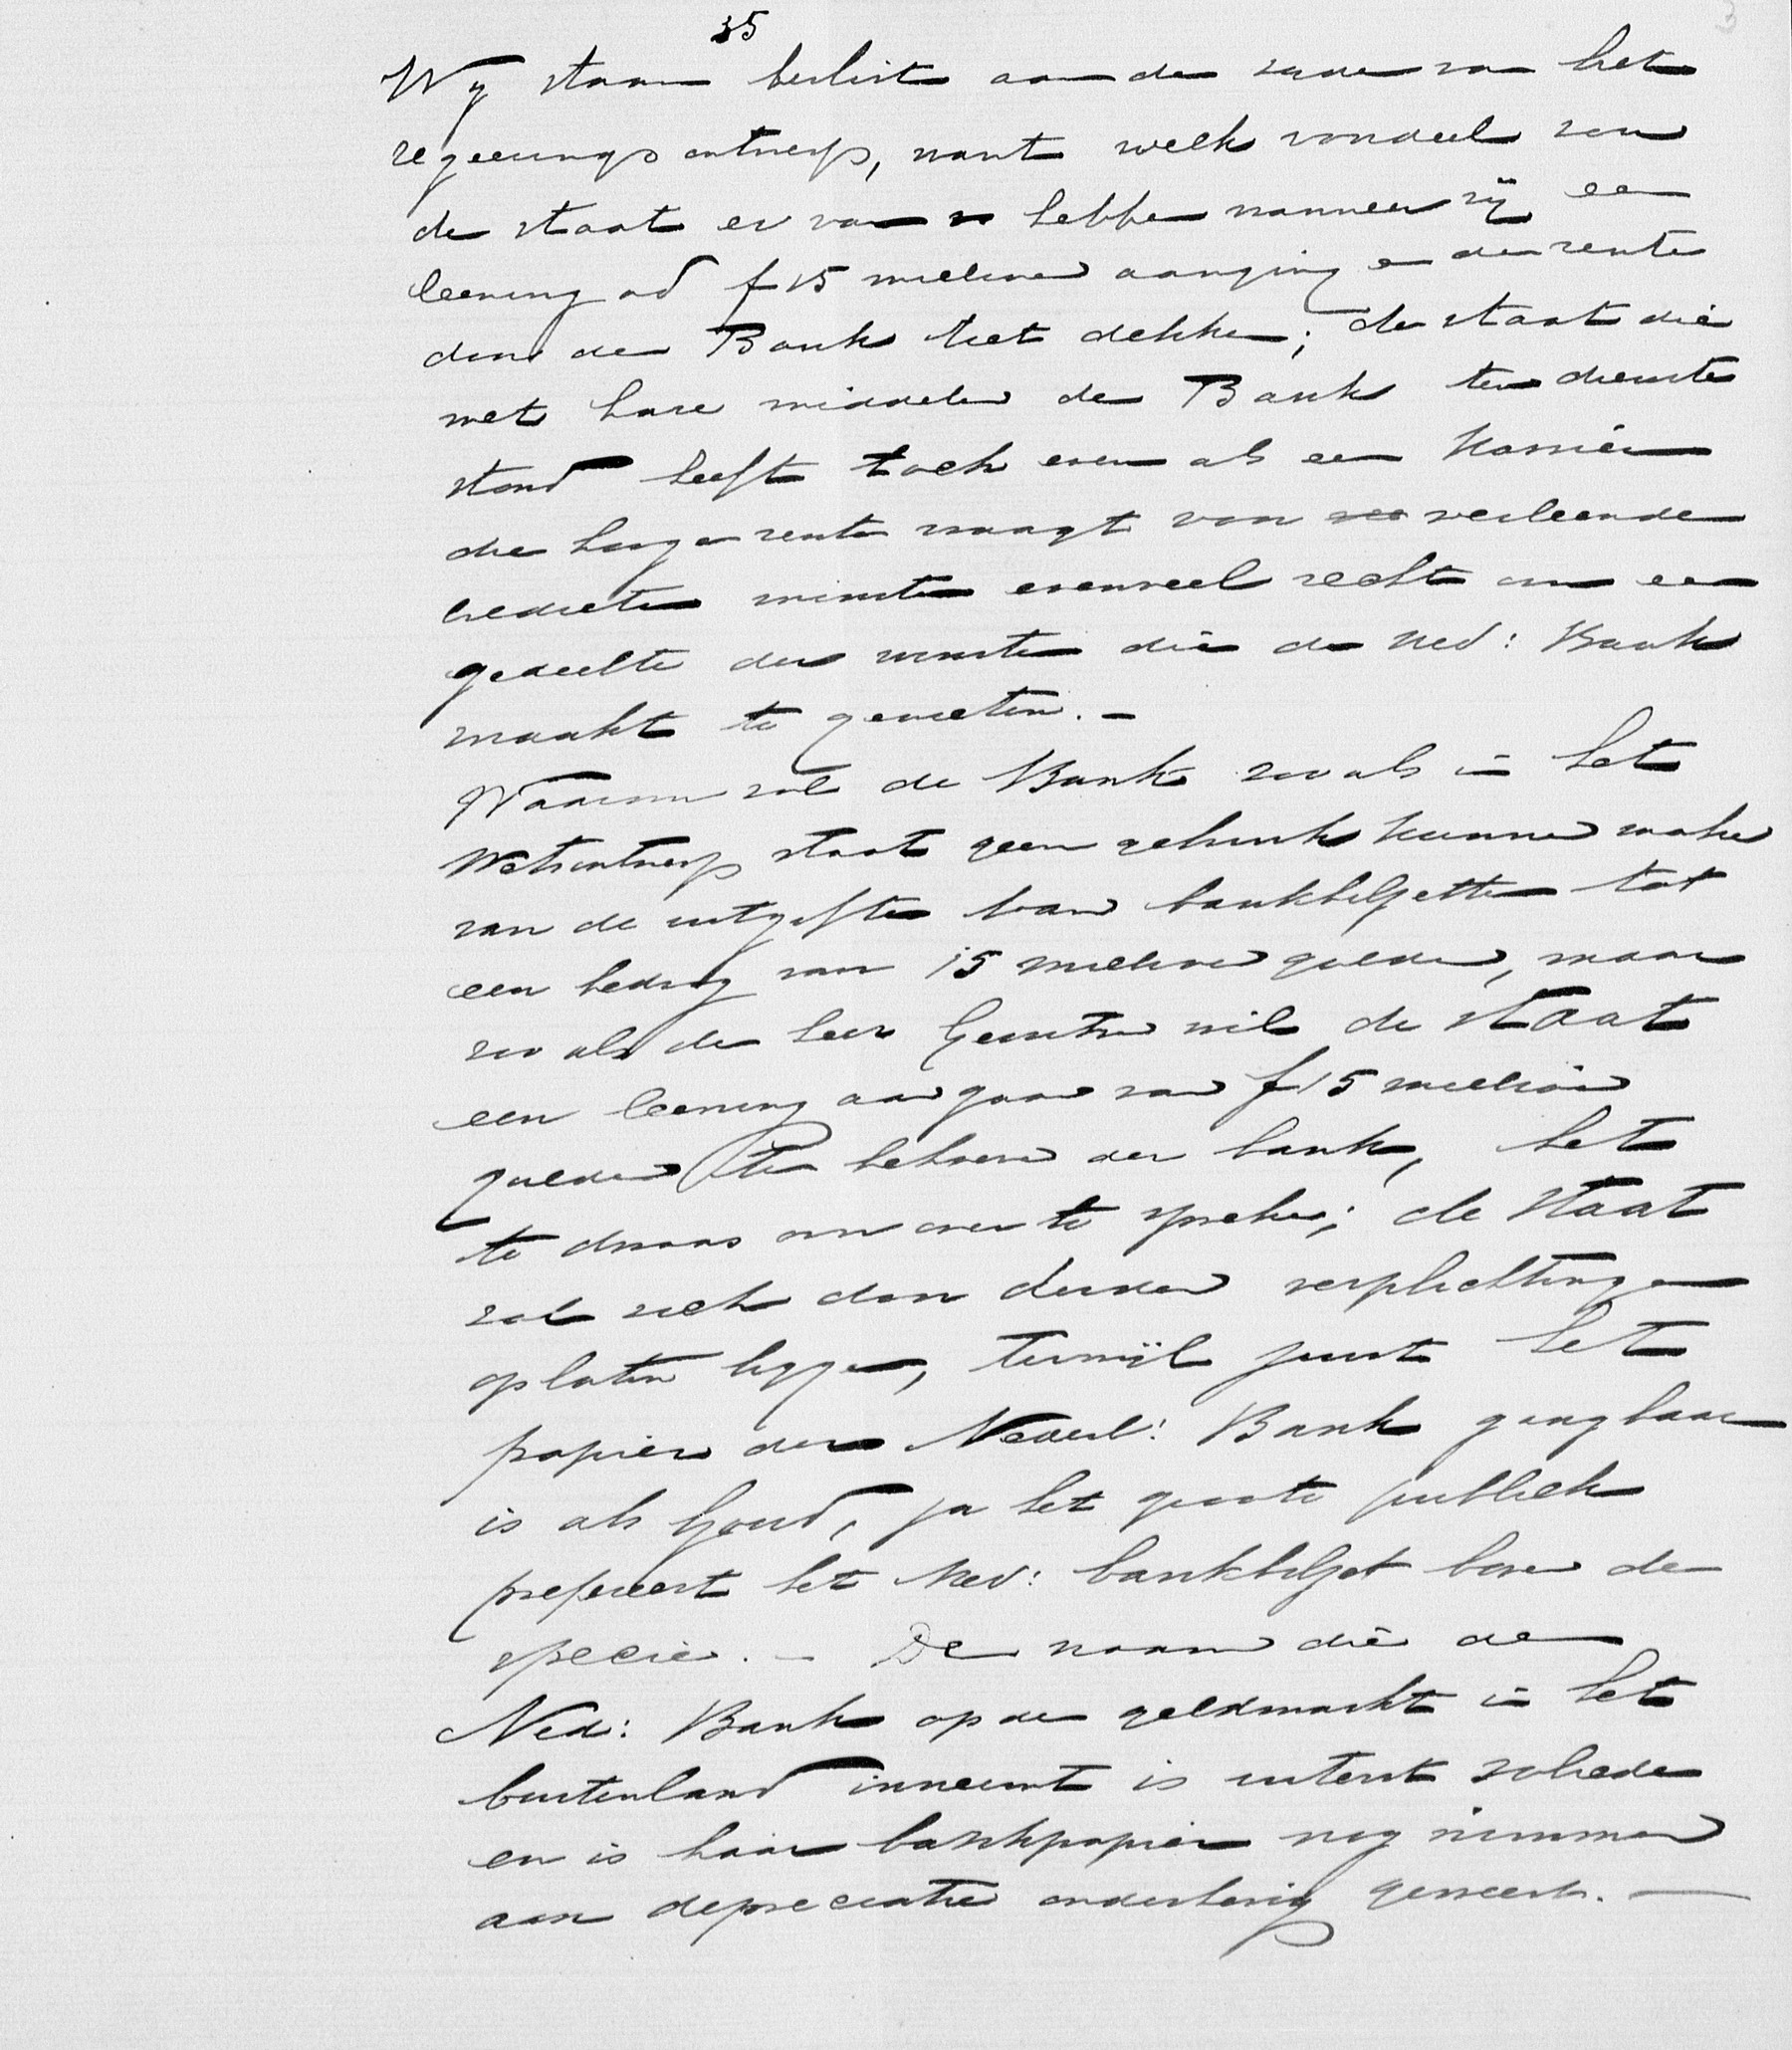 35
3
Wij staan beslist aan de zijde van het
regeeringsontwerp, want welk voordeel zou
de staat er van hebben wanneer zij een
leening ad f 15 millioen aanging en de rente
door de Bank liet dekken; de staat die
met hare middelen de Bank ten dienste
stond heeft toch even als een Kassier
die hooge rente vraagt van verleende
credieten minstens evenveel recht om een
gedeelte der winsten die de Ned: Bank
maakt te genieten. -
Waarom zal de Bank zooals in het
Wetsontwerp staat geen gebruik kunnen maken
van de uitgifte van bankbiljetten tot
een bedrag van 15 millioen gulden, maar
zoo als de heer wil de staat
een leening aangaan van f 15 millioen
gulden ten behoeve der bank, het
te dwaas om over te spreken; de Staat
zal zich dan verplichtingen
op laten leggen, terwijl juist het
papier der Nederl: Bank gangbaar
is als Goud, ja het groote publiek
prefereert het Ned: bankbiljet boven de
specie. - De naam die de
Ned: Bank op de geldmarkt in het
buitenland inneemt is uiterst solide
en is haar bankpapier nog nimmer
aan depreciatie onderhevig geweest. -